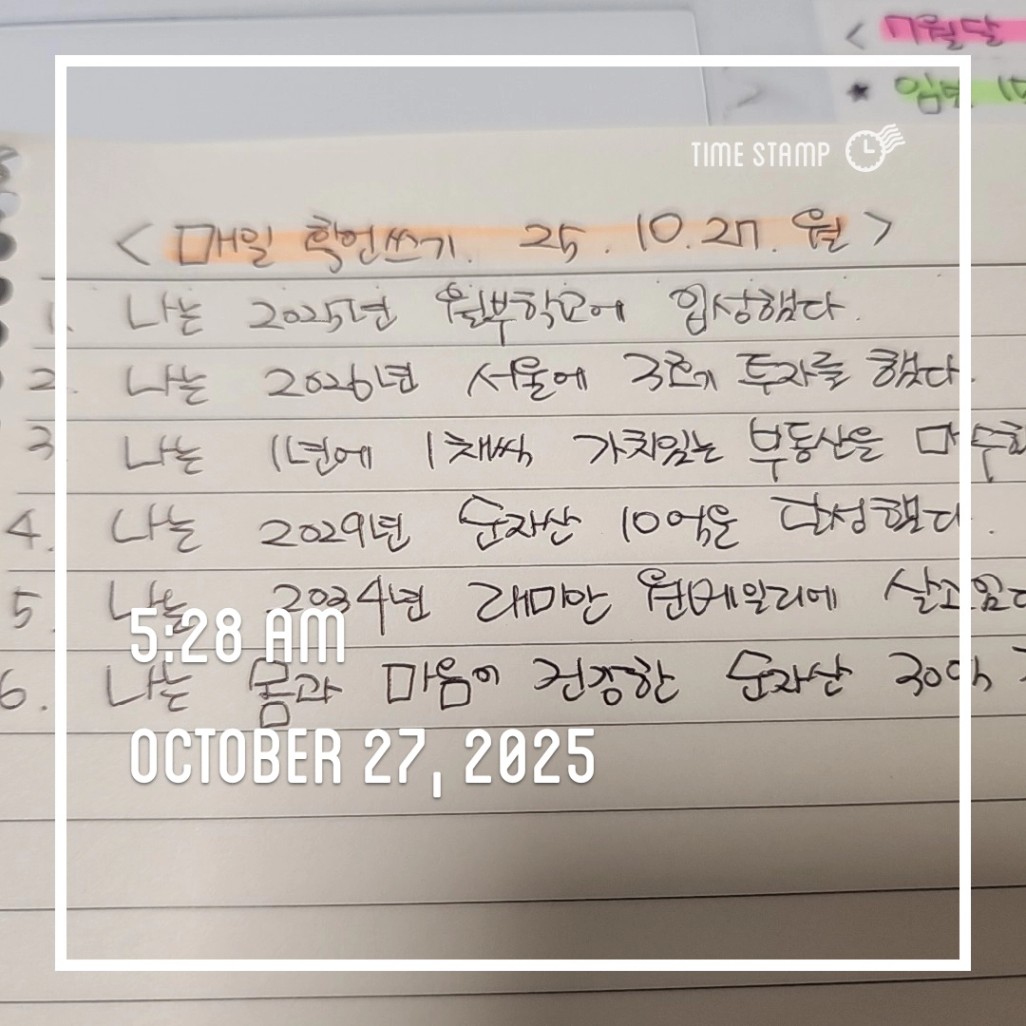 < 7월달
* 임보
TIME STAMP
< 매일 확언쓰기. 25. 10. 27. 월 >
1. 나는 2025년 월부학교에 입성했다.
2. 나는 2026년 서울에 3호기 투자를 했다.
3. 나는 1년에 1채씩 가치있는 부동산을 매수
4. 나는 2029년 순자산 10억을 달성했다.
5. 나는 2034년 래미안 원베일리에 살고있
6. 나는 몸과 마음이 건강한 순자산 30억
5:28 AM
OCTOBER 27, 2025